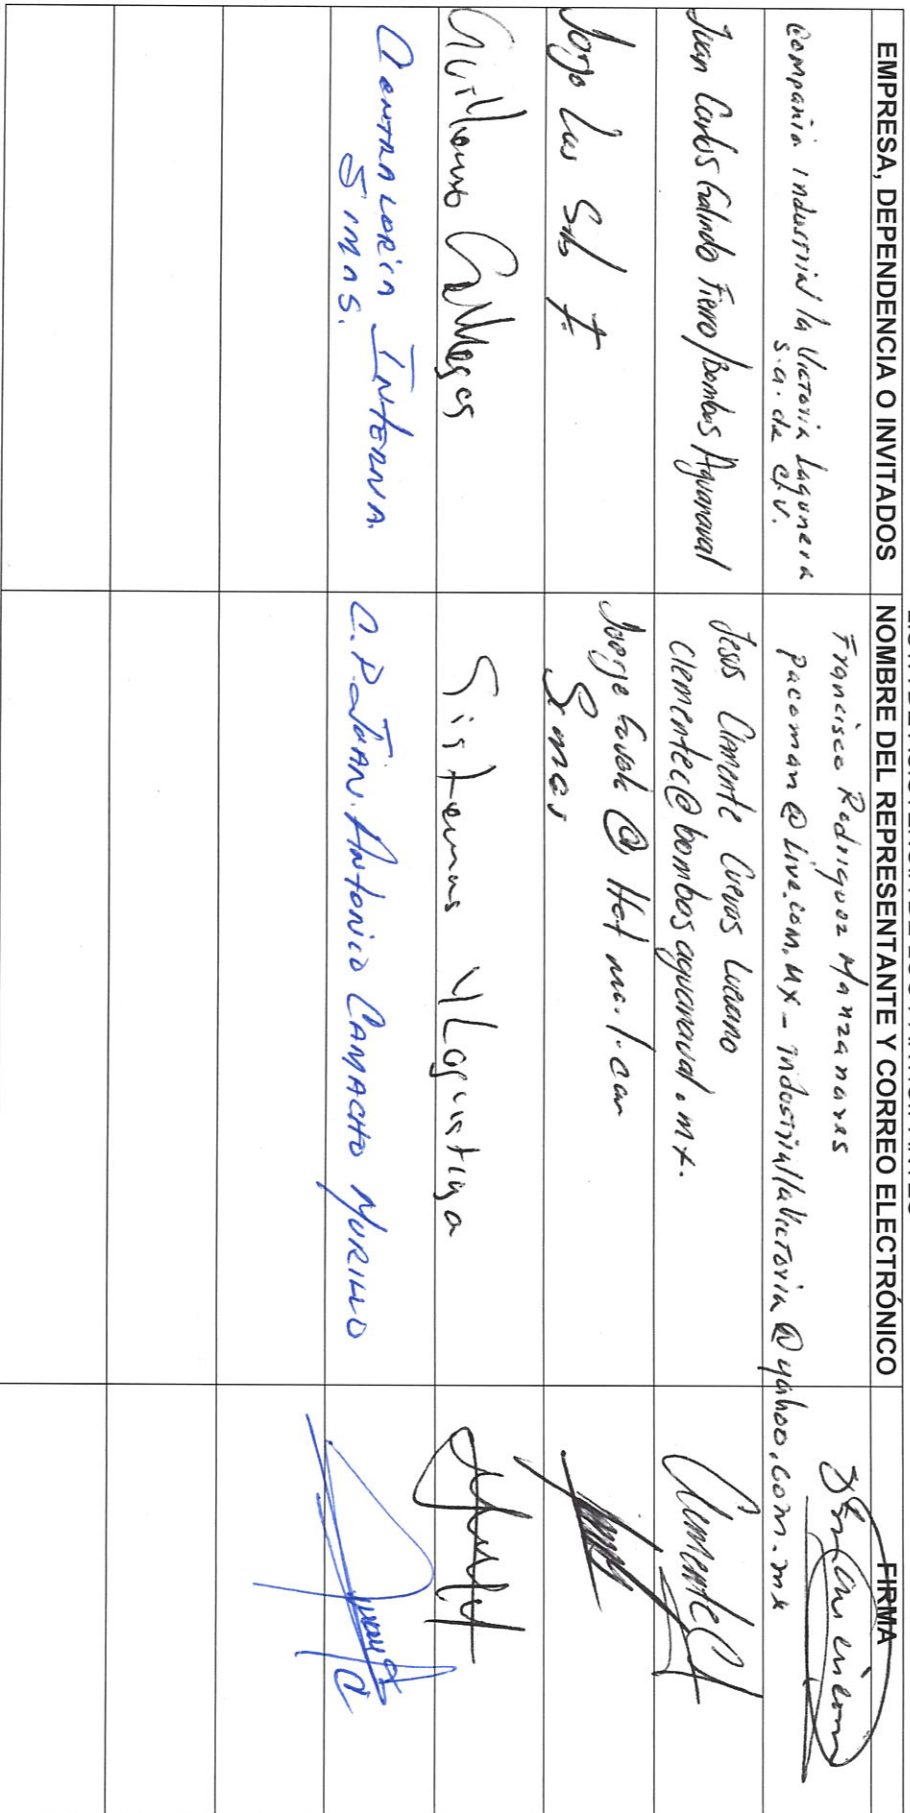 EMPRESA, DEPENDENCIA O INVITADOS
NOMBRE DEL REPRESENTANTE Y CORREO ELECTRÓNICO
FIRMA
Compañia industrial la Victoria Lagunera
s.a. de c.v.
Francisco Rodriguez Manzanares
pacoman@live.com.mx - industriallavictoria@yahoo.com.mx
Juan Carlos Galindo Fierro/Bombas Aguanaval
Jesus Clemente Cuevas Luevano
clementec@bombasaguanaval.mx.
Clemente C
Jorge Luis
Jorge @ Hotmail.com
Simas
Guillermo Gallegos
Sistemas y Logistica
Contraloría Interna
Simas.
C.P. Juan Antonio Camacho Murillo